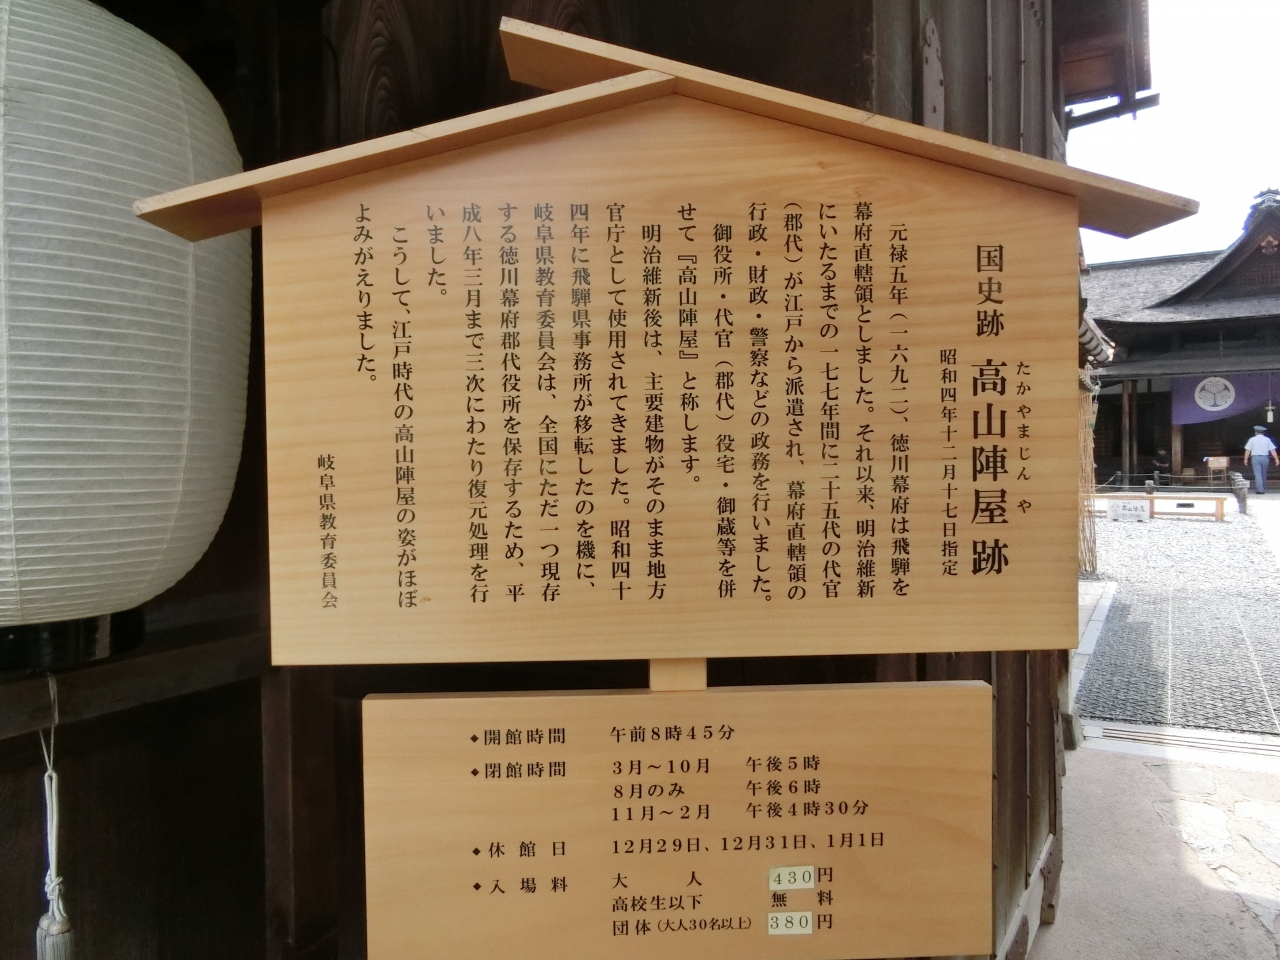 国史跡 高山陣屋跡
たかやまじんや
昭和四年十二月十七日指定
元禄五年(一六九二)、徳川幕府は飛騨を
幕府直轄領としました。それ以来、明治維新
にいたるまでの一七七年間に二十五代の代官
(郡代)が江戸から派遣され、幕府直轄領の
行政・財政・警察などの政務を行いました。
御役所・代官(郡代)役宅・御蔵等を併
せて『高山陣屋』と称します。
明治維新後は、主要建物がそのまま地方
官庁として使用されてきました。昭和四十
四年に飛騨県事務所が移転したのを機に、
岐阜県教育委員会は、全国にただ一つ現存
する徳川幕府郡代役所を保存するため、平
成八年三月まで三次にわたり復元処理を行
いました。
こうして、江戸時代の高山陣屋の姿がほぼ
よみがえりました。
岐阜県教育委員会
◆開館時間 午前8時45分
◆閉館時間 3月〜10月 午後5時
8月のみ 午後6時
11月〜2月 午後4時30分
◆休館日 12月29日、12月31日、1月1日
◆入場料 大人 430円
高校生以下 無料
団体(大人30名以上) 380円